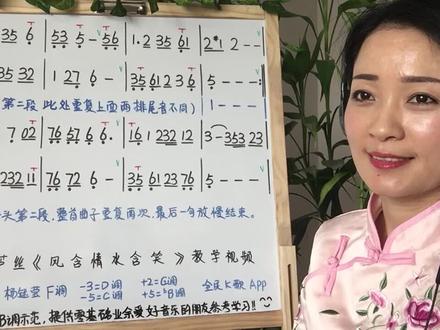 35 6 | 53 5 - 56 | 1·2 35 61 | 2*1 2 - -
35 32 | 1 27 6 - | 35 61 2 3 6 | 5 - - -
第二段 此处重复上面两排尾音不同) | 1 - - -
7 02 | 76 57 6 6· | 16 1 232 12 | 3 - 353 23
232 11 | 76 56 6 - | 35 61 23 76 | 5 - -
头第二段,整首曲子重复两次,最后一句放慢结束。
丝《风含情水含笑》教学视频
杨钰莹 F调 -3=D调 +2=G调 全民K歌 APP
-5=C调 +5=ᵇB调
B调示范,提供零基础业余爱好音乐的朋友参考学习!!